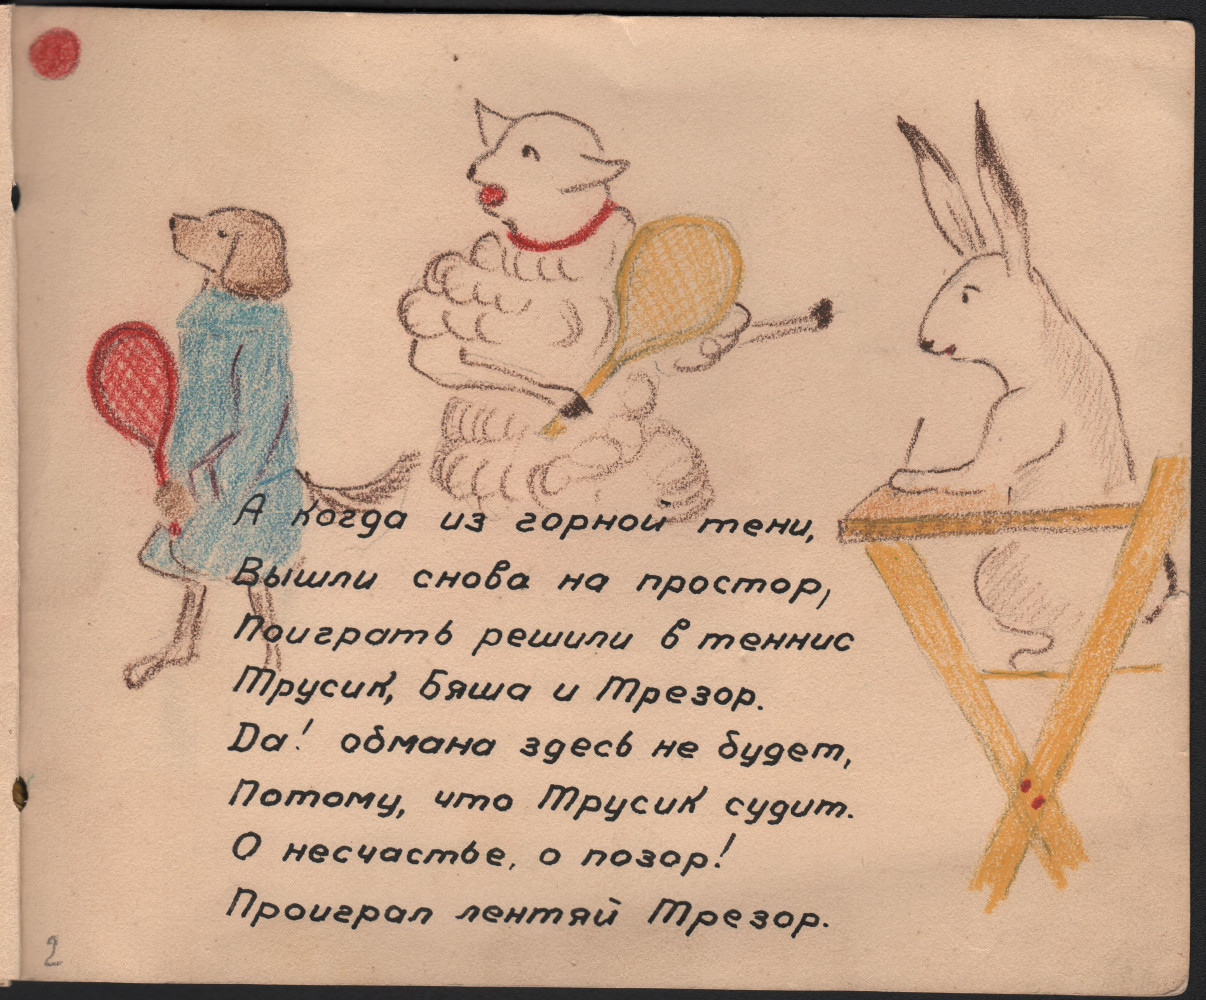 А когда из горной тени,
Вышли снова на простор,
Поиграть решили в теннис
Трусик, Бяша и Трезор.
Да! обмана здесь не будет,
Потому, что Трусик судит.
О несчастье, о позор!
Проиграл лентяй Трезор.
2